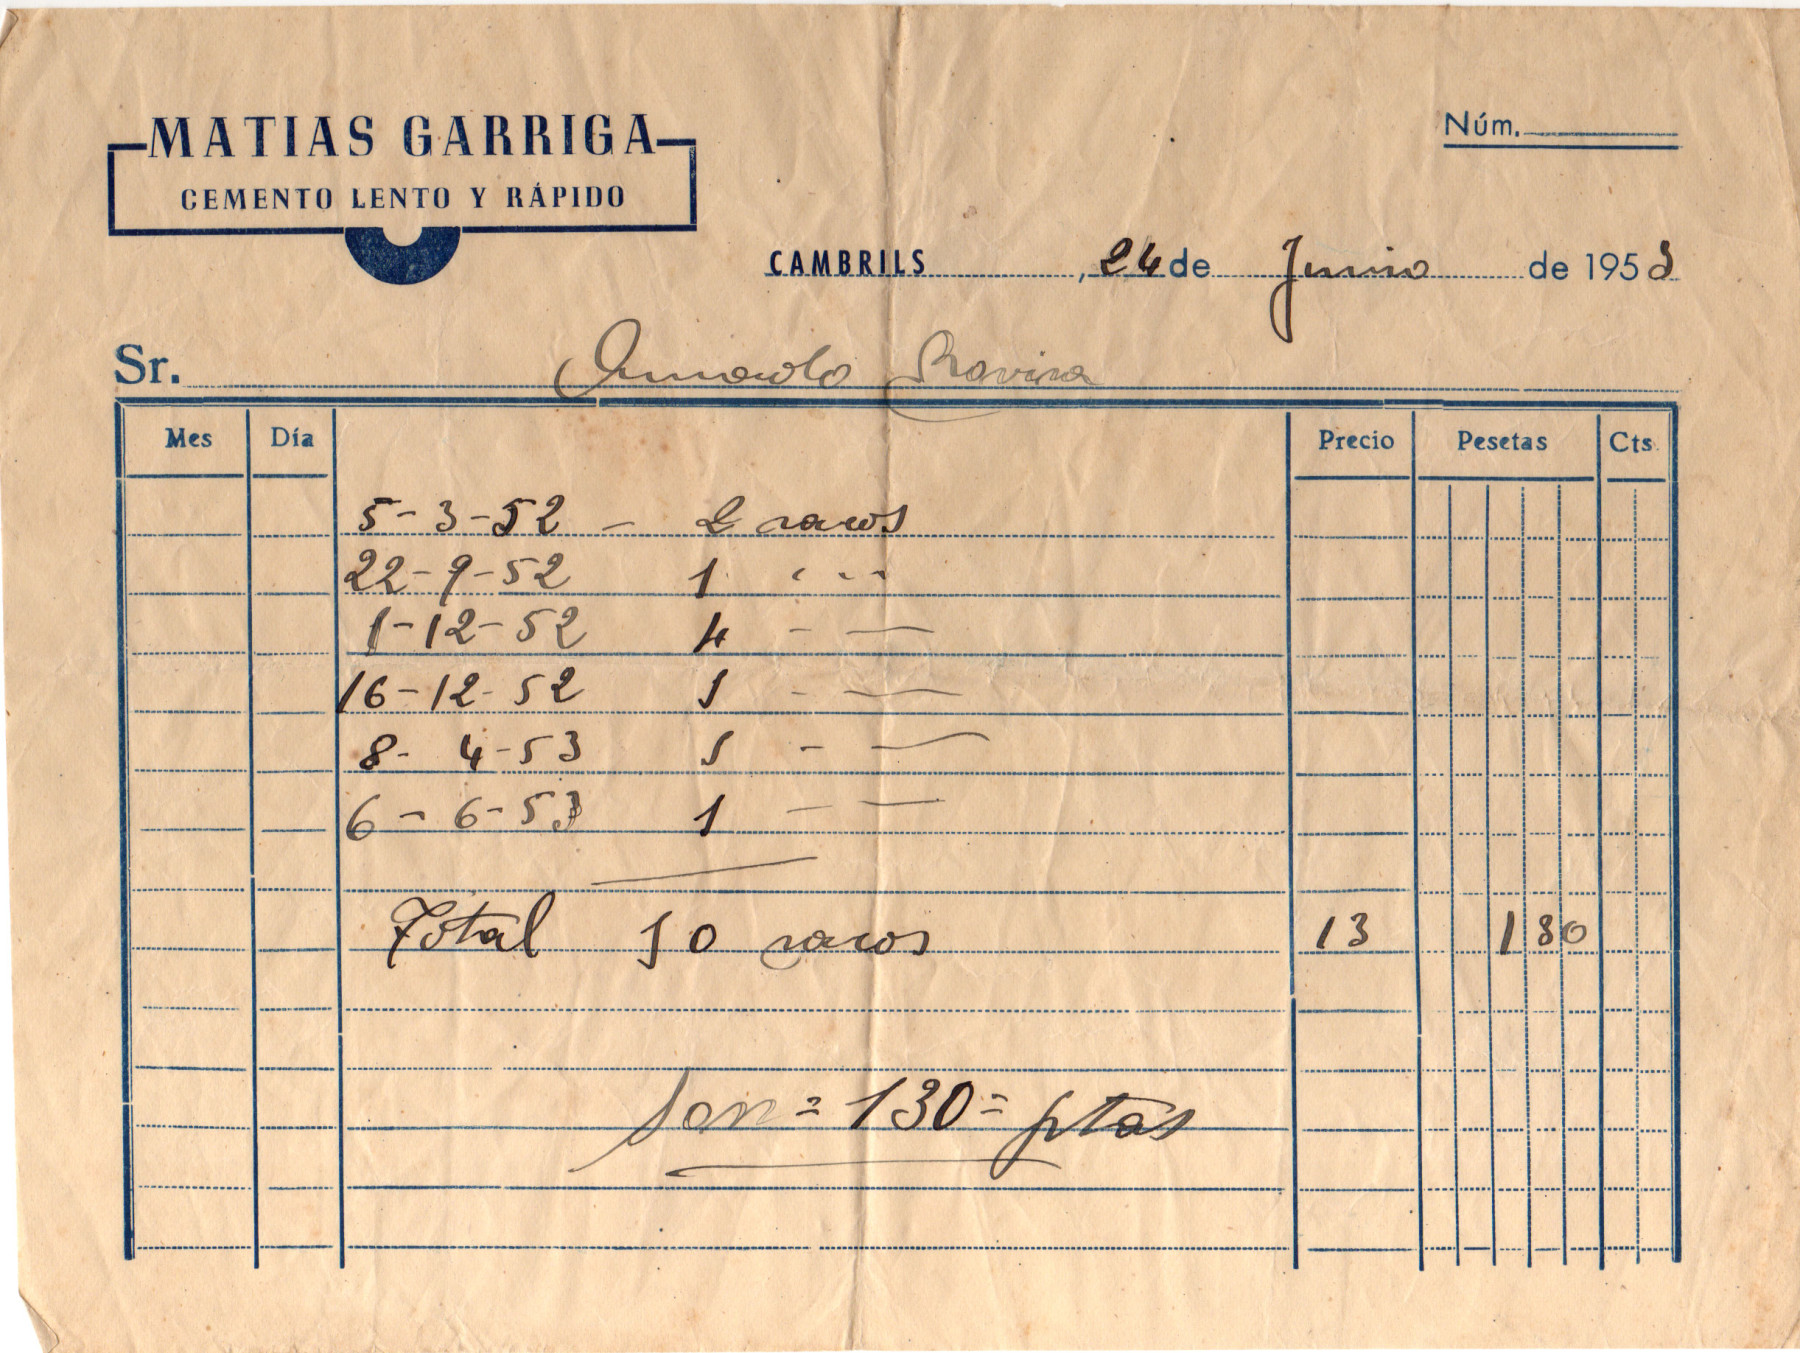 MATIAS GARRIGA
CEMENTO LENTO Y RÁPIDO
Núm.
CAMBRILS, 24 de Junio de 1953
Sr. Armando Rovira
Mes Día Precio Pesetas Cts.
5-3-52 - 2 sacos
22-9-52 1 " " "
1-12-52 4 - —
16-12-52 1 - —
8-4-53 1 - —
6-6-53 1 - —
Total 10 sacos 13 130
Son = 130 = ptas